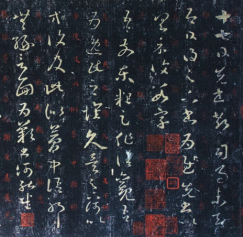 十七日先書郗司馬未去
即日得足下書為慰先書
以具示復數字
吾前東粗足作佳觀吾
為逸民之懷久矣足下何以
等復及此似夢中語耶
無緣言面為歎書何能悉